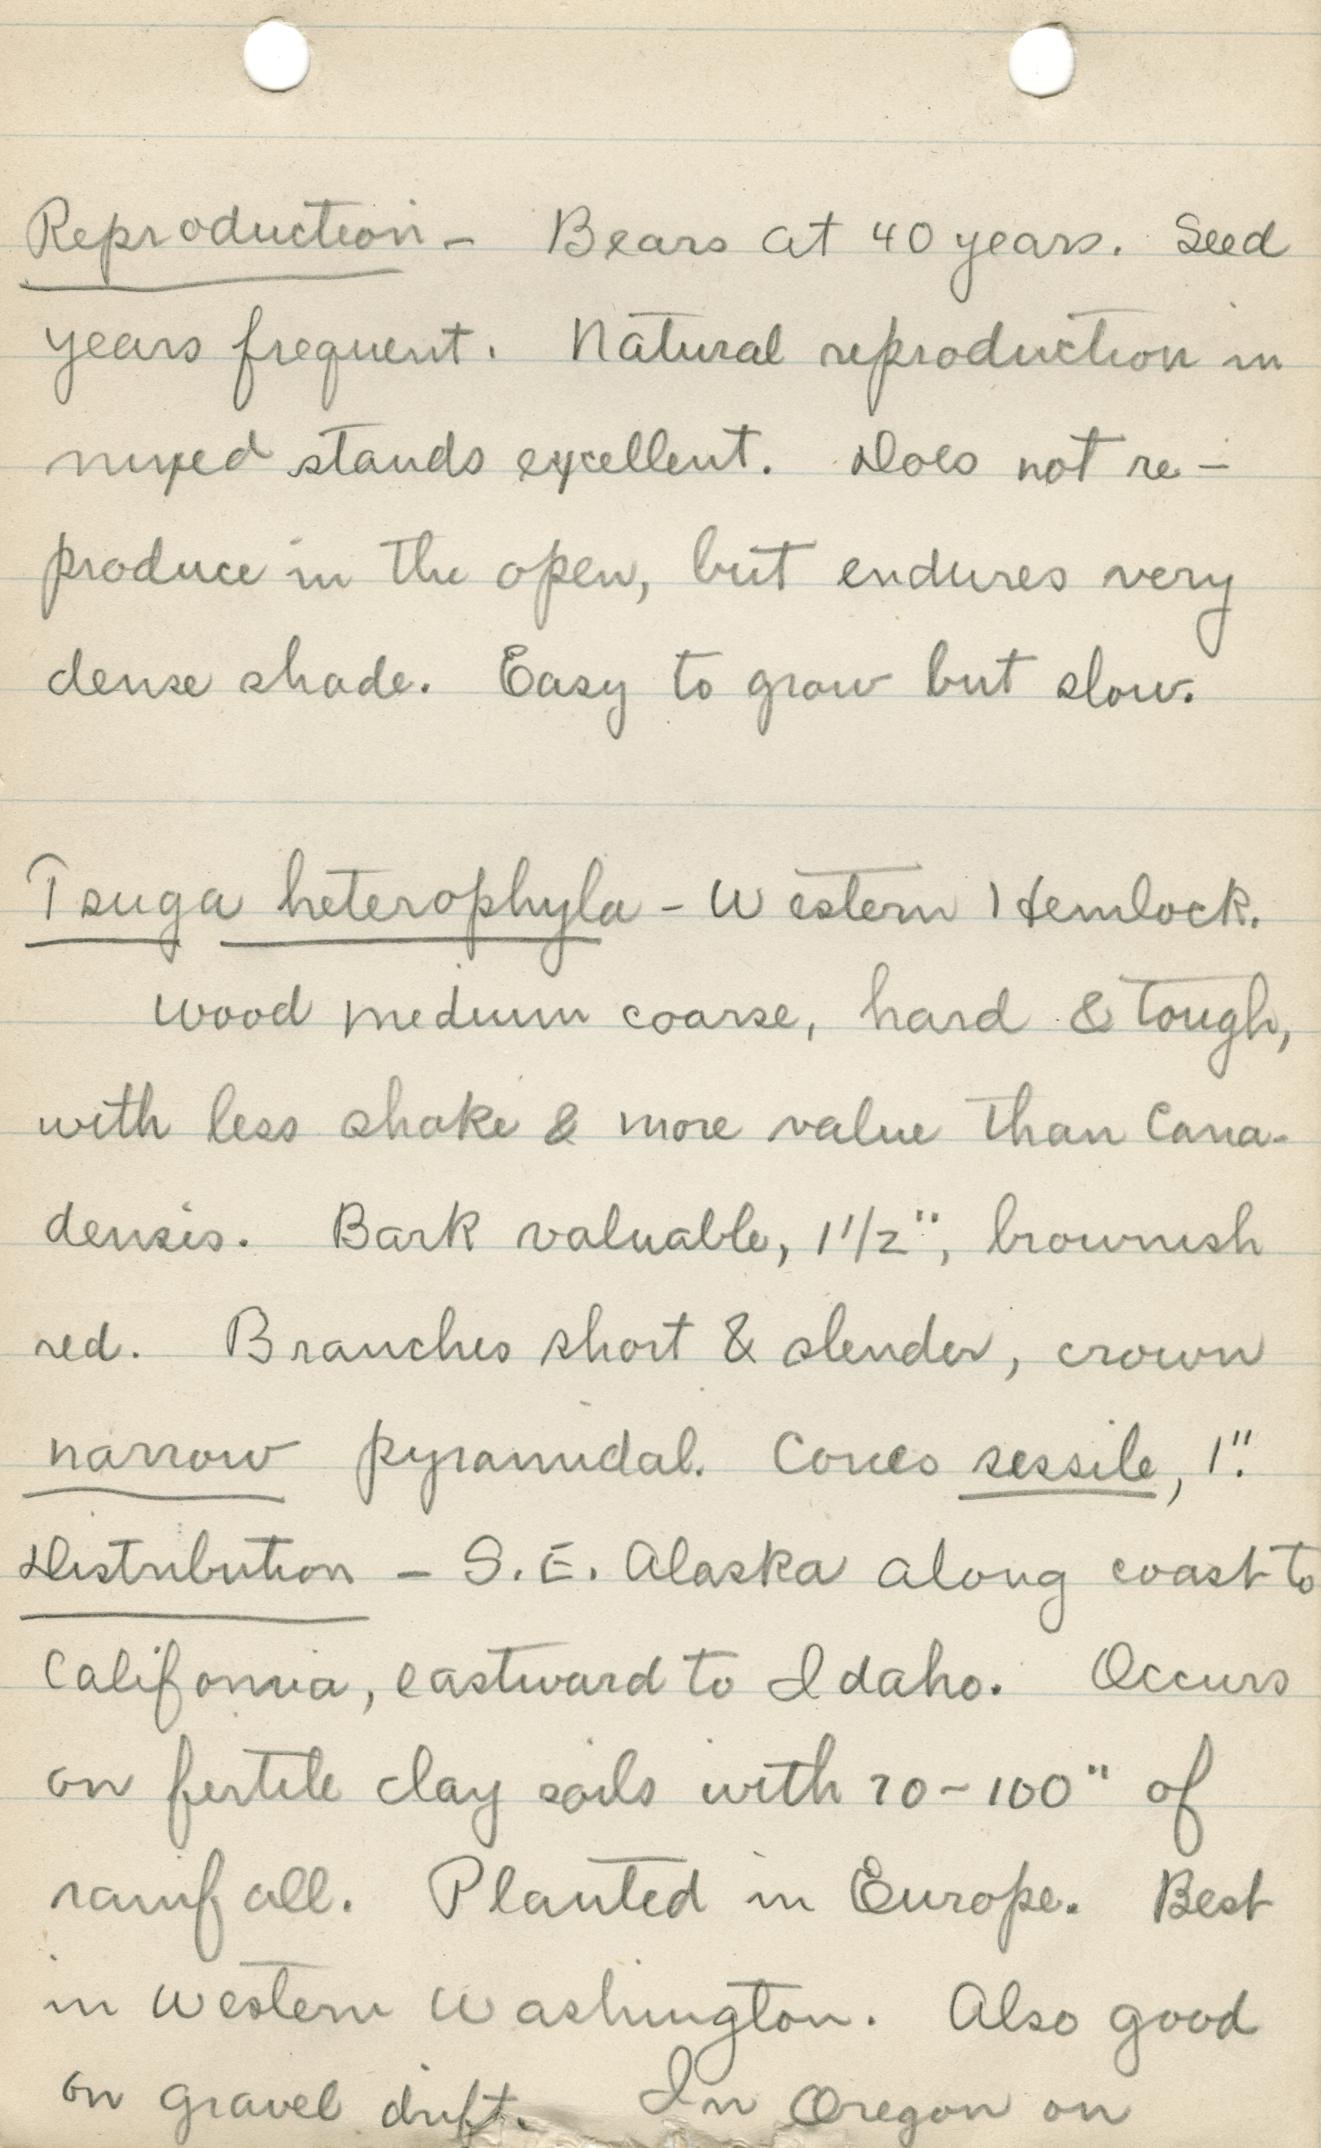 Reproduction - Bears at 40 years. Seed
years frequent. Natural reproduction in
mixed stands excellent. Does not re-
produce in the open, but endures very
dense shade. Easy to grow but slow.
Tsuga heterophyla - Western Hemlock.
Wood medium coarse, hard & tough,
with less shake & more value than Cana-
densis. Bark valuable, 1 1/2", brownish
red. Branches short & slender, crown
narrow pyramidal. Cones sessile, 1".
Distribution - S.E. Alaska along coast to
California, eastward to Idaho. Occurs
on fertile clay soils with 70-100" of
rainfall. Planted in Europe. Best
in Western Washington. Also good
on gravel drift. In Oregon on